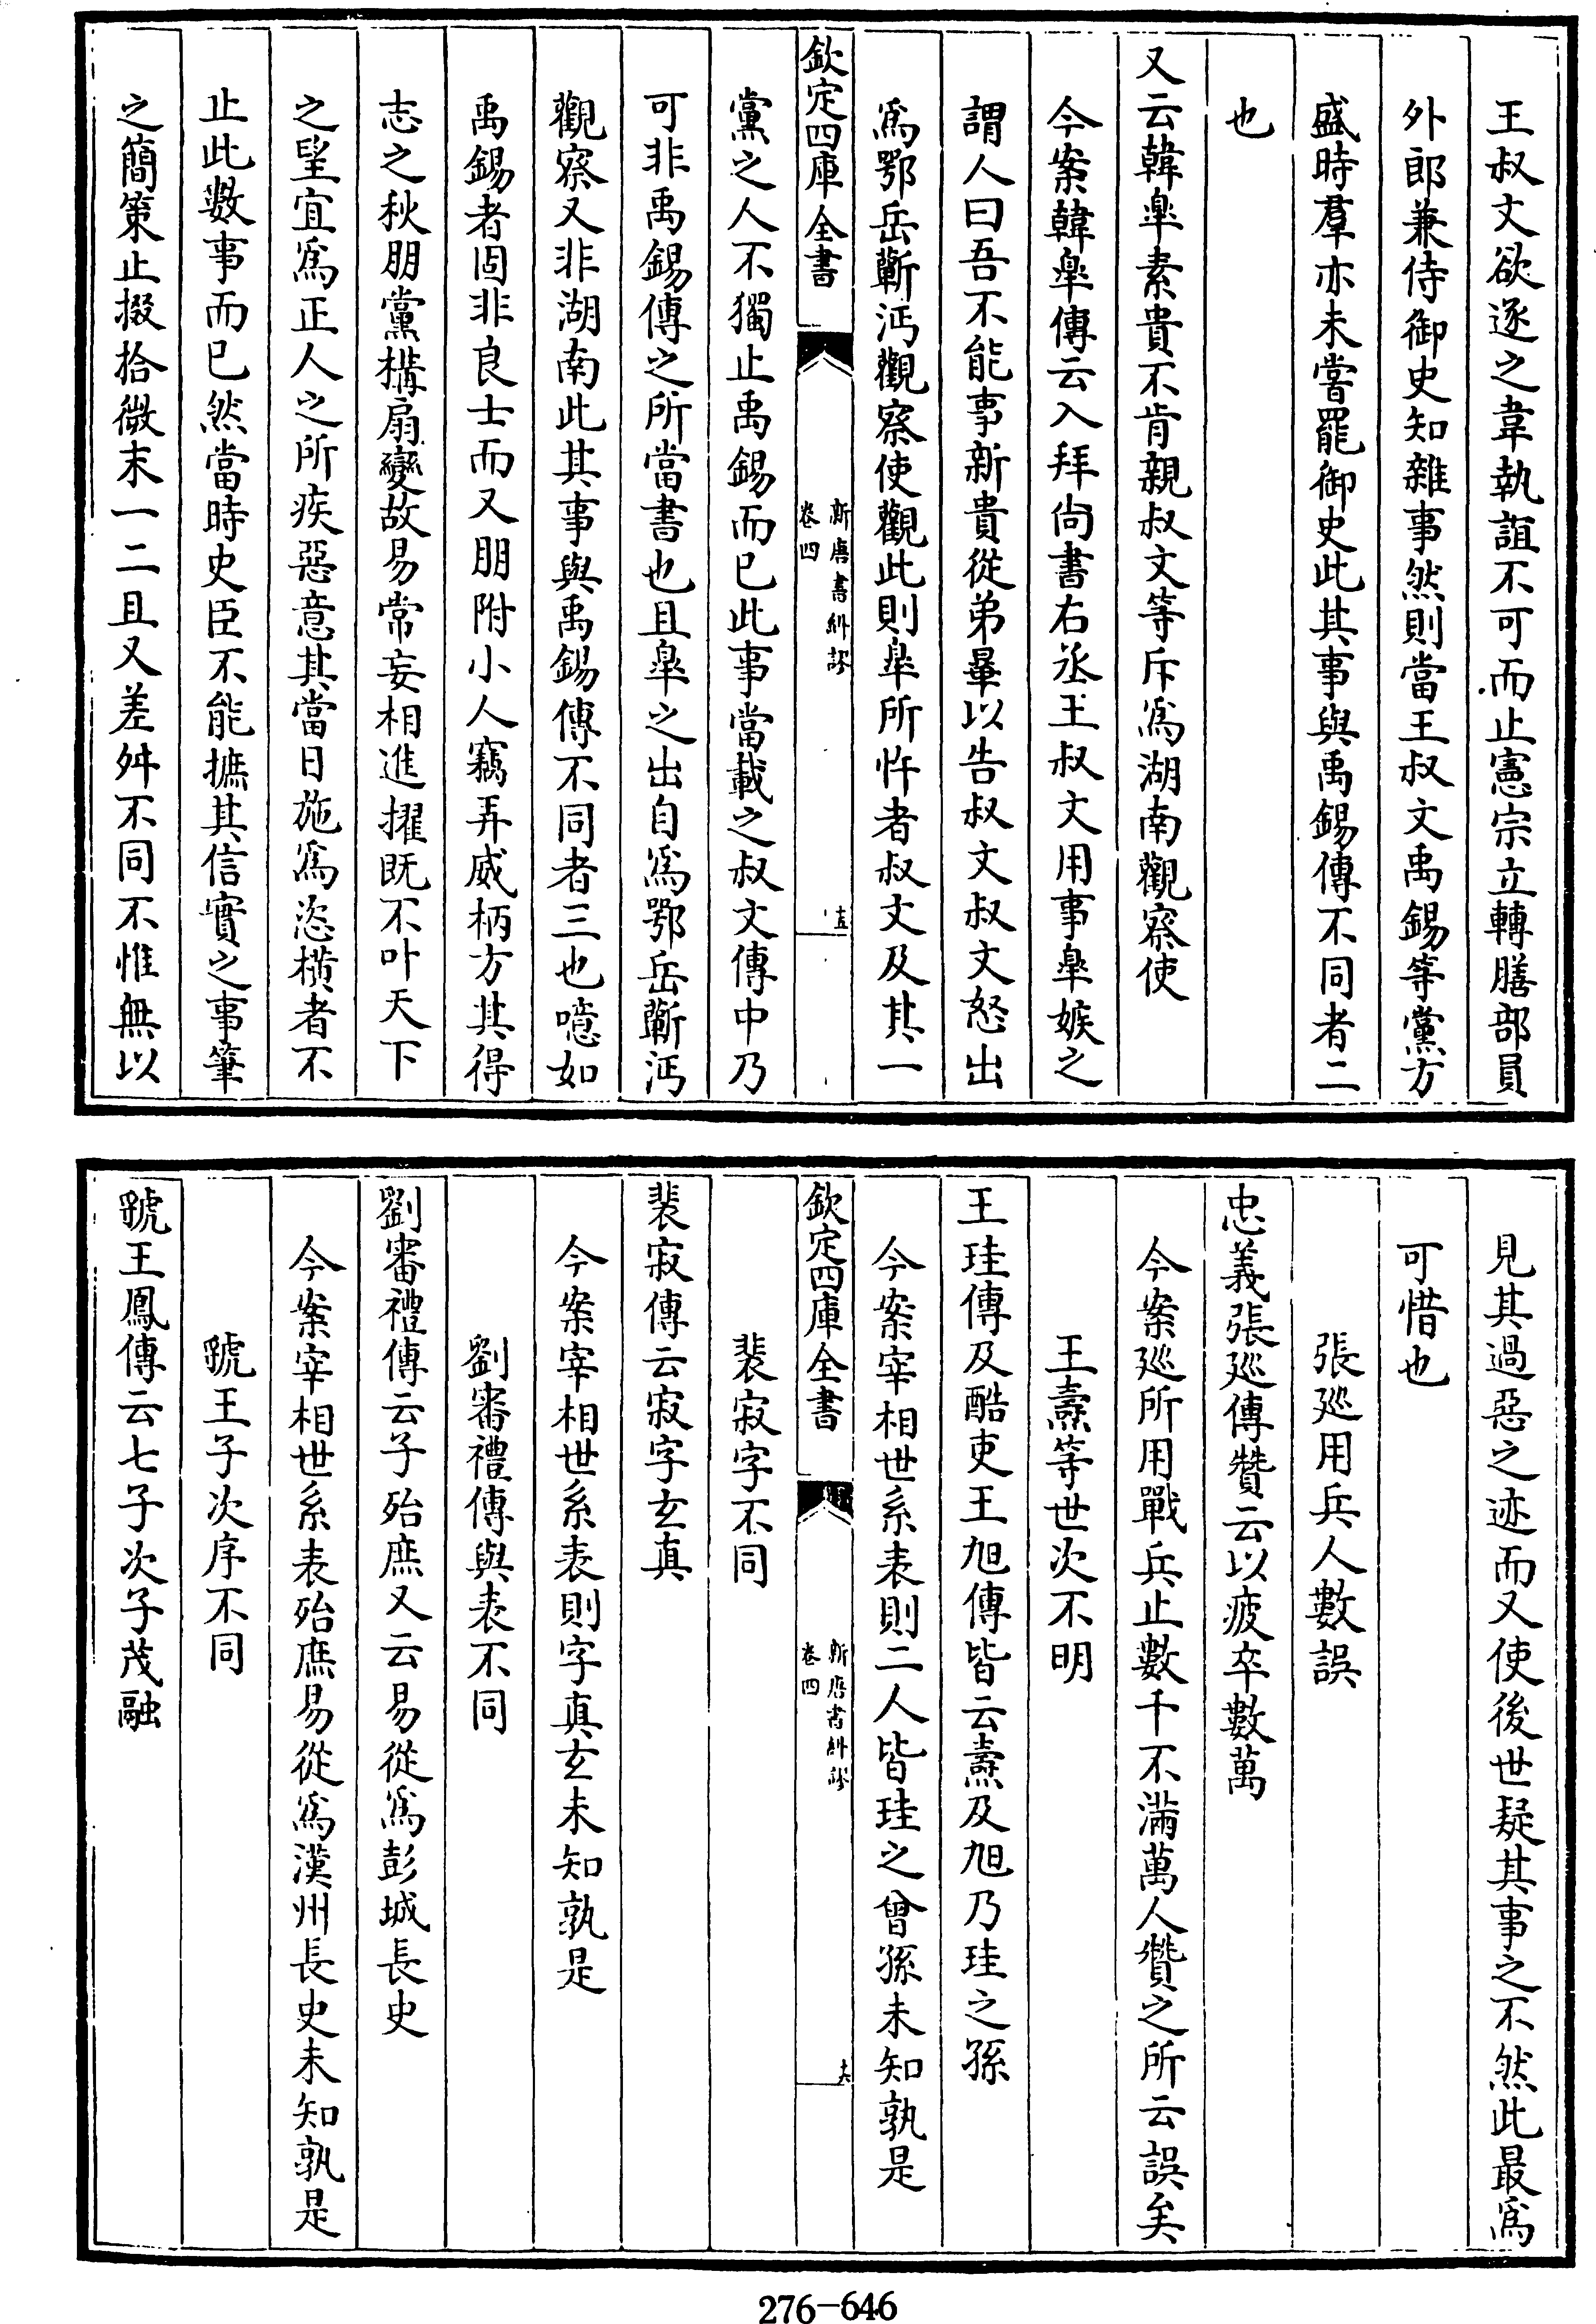 王叔文欲逐之韋執誼不可而止憲宗立轉膳部員
外郎兼侍御史知雜事然則當王叔文禹錫等黨方
盛時羣亦未嘗罷御史此其事與禹錫傳不同者二
也
又云韓臯素貴不肯親叔文等斥爲湖南觀察使
今案韓臯傳云入拜尚書右丞王叔文用事臯嫉之
謂人曰吾不能事新貴從弟曅以告叔文叔文怒出
爲鄂岳蘄沔觀察使觀此則臯所忤者叔文及其一
欽定四庫全書
新唐書糾謬
卷四
十五
黨之人不獨止禹錫而已此事當載之叔文傳中乃
可非禹錫傳之所當書也且臯之出自爲鄂岳蘄沔
觀察又非湖南此其事與禹錫傳不同者三也噫如
禹錫者固非良士而又朋附小人竊弄威柄方其得
志之秋朋黨構扇變故易常妄相進擢既不叶天下
之望宜爲正人之所疾惡意其當日施爲恣橫者不
止此數事而已然當時史臣不能摭其信實之事筆
之簡策止掇拾微末一二且又差舛不同不惟無以
見其過惡之迹而又使後世疑其事之不然此最爲
可惜也
張廵用兵人數誤
忠義張廵傳贊云以疲卒數萬
今案廵所用戰兵止數千不滿萬人贊之所云誤矣
王燾等世次不明
王珪傳及酷吏王旭傳皆云燾及旭乃珪之孫
今案宰相世系表則二人皆珪之曾孫未知孰是
欽定四庫全書
新唐書糾謬
卷四
十六
裴寂字不同
裴寂傳云寂字玄真
今案宰相世系表則字真玄未知孰是
劉審禮傳與表不同
劉審禮傳云子殆庶又云易從爲彭城長史
今案宰相世系表殆庶易從爲漢州長史未知孰是
虢王子次序不同
虢王鳳傳云七子次子茂融
276-646